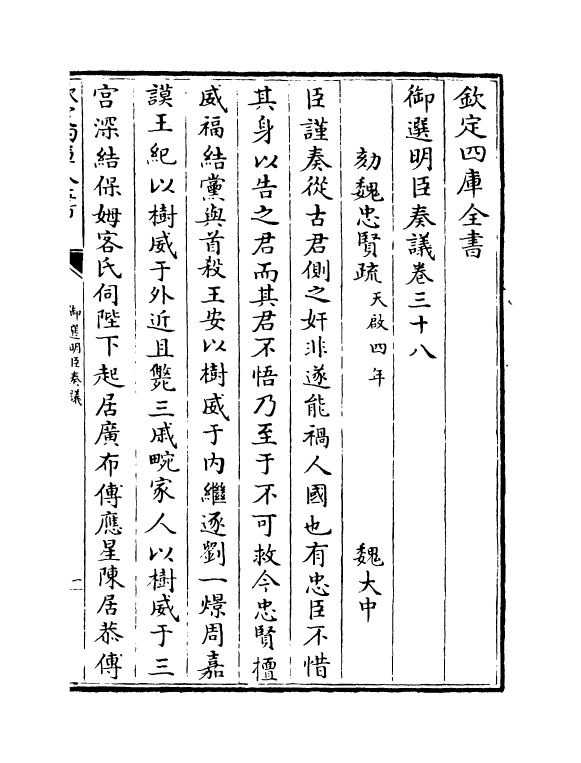 欽定四庫全書
御選明臣奏議卷三十八
劾魏忠賢疏天啟四年 魏大中
臣謹奏從古君側之奸非遂能禍人國也有忠臣不惜
其身以告之君而其君不悟乃至于不可救今忠賢擅
威福結黨與首殺王安以樹威于内繼逐劉一燝周嘉
謨王紀以樹威于外近且斃三戚畹家人以樹威于三
宫深結保姆客氏伺陛下起居廣布傅應星陳居恭傅
御選明臣奏議